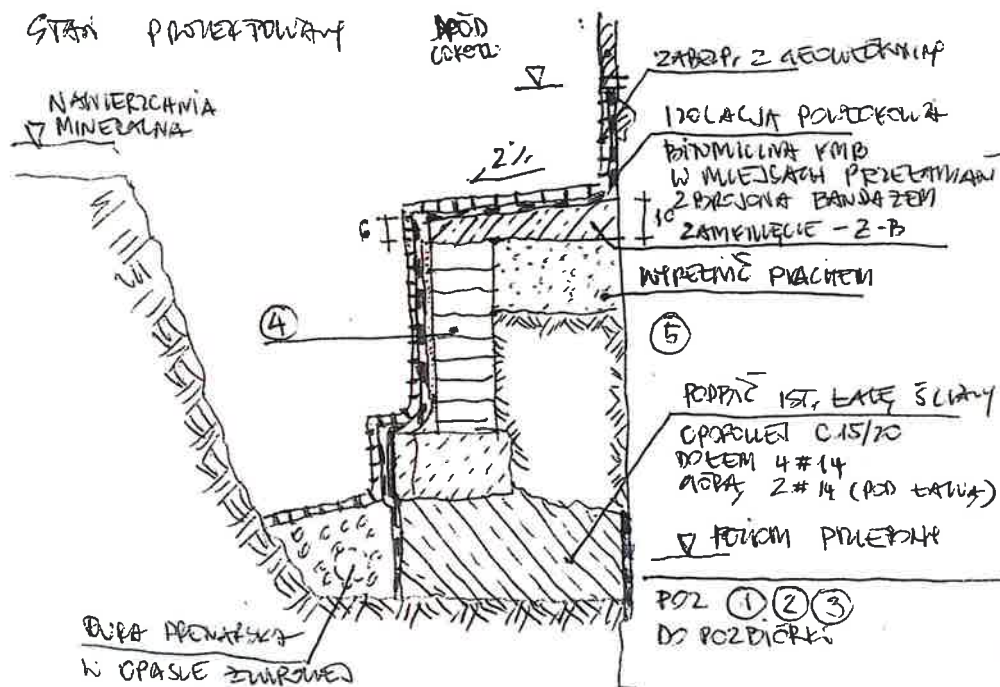 STAN PROJEKTOWANY
SPÓD
COKOŁU
NAWIERZCHNIA
MINERALNA
ZABEZP. Z GEOWŁÓKNINY
2%
IZOLACJA POWŁOKOWA
BITUMICZNA KMB
W MIEJSCACH PRZEŁAMAŃ
ZBROJONA BANDAŻEM
ZAMKNIĘCIE - Z-B
6
10
WYPEŁNIĆ PIACHEM
4
5
PODBIĆ IST. ŁAWĘ ŚCIANY
OPOROWEJ C 15/20
DOŁEM 4 # 14
GÓRĄ 2 # 14 (POD ŁAWĄ)
POZIOM PIWNICY
POZ 1 2 3
DO ROZBIÓRKI
RURA DRENARSKA
W OPASCE ŻWIROWEJ